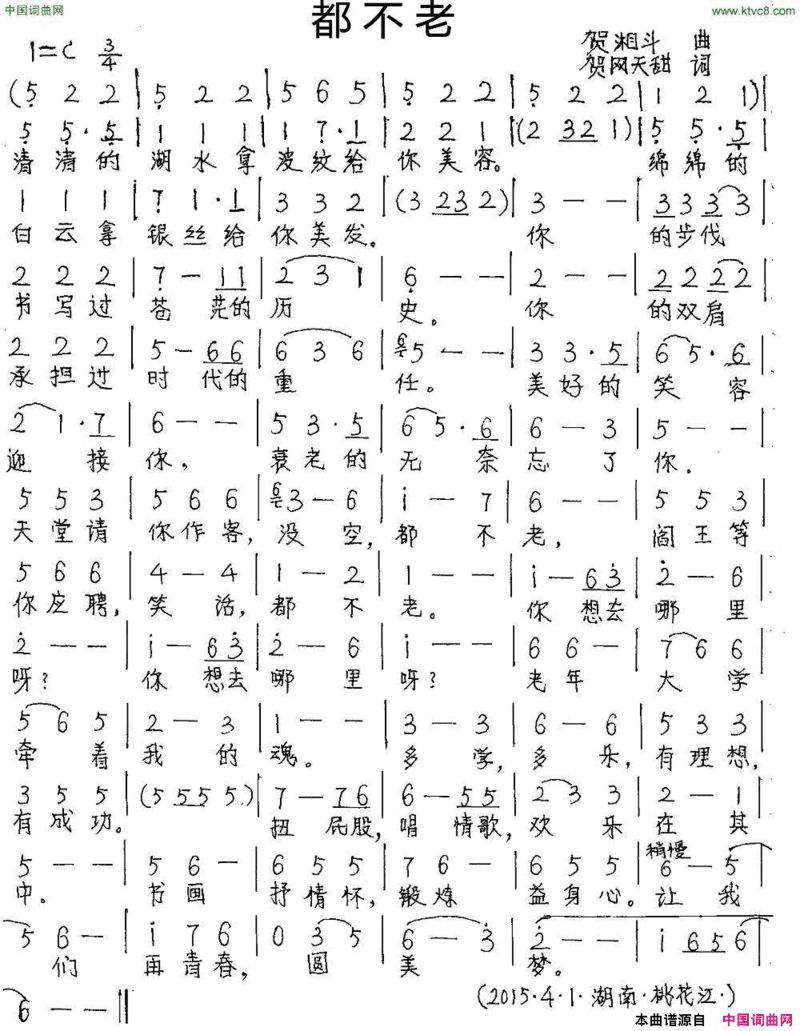 中国词曲网
www.ktvc8.com
都不老
1=C 3/4
贺湘斗 曲
贺网天甜 词
(5 2 2 | 5 2 2 | 5 6 5 | 5 2 2 | 5 2 2 | 1 2 1)|
5 5·5 | 1 1 1 | 1 7·1 | 2 2 1 |(2 32 1)| 5 5·5 |
清清的 湖水拿 波纹给 你美容。 绵绵的
1 1 1 | 7 1·1 | 3 3 2 |(3 23 2)| 3 — — | 3 3 3 3 |
白云拿 银丝给 你美发。 你 的步伐
2 2 2 | 7 — 11 | 2 3 1 | 6 — — | 2 — — | 2 2 2 2 |
书写过 苍茫的 历 史。 你 的双肩
2 2 2 | 5 — 66 | 6 3 6 | 5 — — | 3 3·5 | 6 5·6 |
承担过 时代的 重 任。 美好的 笑容
2 1·7 | 6 — — | 5 3·5 | 6 5·6 | 6 — 3 | 5 — — |
迎接 你, 衰老的 无奈 忘了 你.
5 5 3 | 5 6 6 | 3 — 6 | i — 7 | 6 — — | 5 5 3 |
天堂请 你作客, 没空, 都不 老, 阎王等
5 6 6 | 4 — 4 | 1 — 2 | 1 — — | i — 63 | 2 — 6 |
你应聘, 笑话, 都不 老。 你想去 哪里
2 — — | i — 63 | 2 — 6 | i — — | 6 6 — | 7 6 6 |
呀? 你想去 哪里 呀? 老年 大学
5 6 5 | 2 — 3 | 1 — — | 3 — 3 | 6 — 6 | 5 3 3 |
牵着 我的 魂。 多学, 多乐, 有理想,
3 5 5 |(5 5 5 5)| 7 — 76 | 6 — 55 | 2 3 3 | 2 — 1 |
有成功。 扭屁股, 唱情歌, 欢乐 在其
稍慢
5 — — | 5 6 — | 6 5 5 | 7 6 — | 6 5 5 | 6 — 5 |
中. 书画 抒情怀, 锻炼 益身心。 让我
5 6 — | i 7 6 | 0 3 5 | 6 — 3 | 2 — — | i 65 6 |
们 再青春, 圆 美 梦。
6 — — ‖
(2015·4·1·湖南·桃花江·)
本曲谱源自 中国词曲网